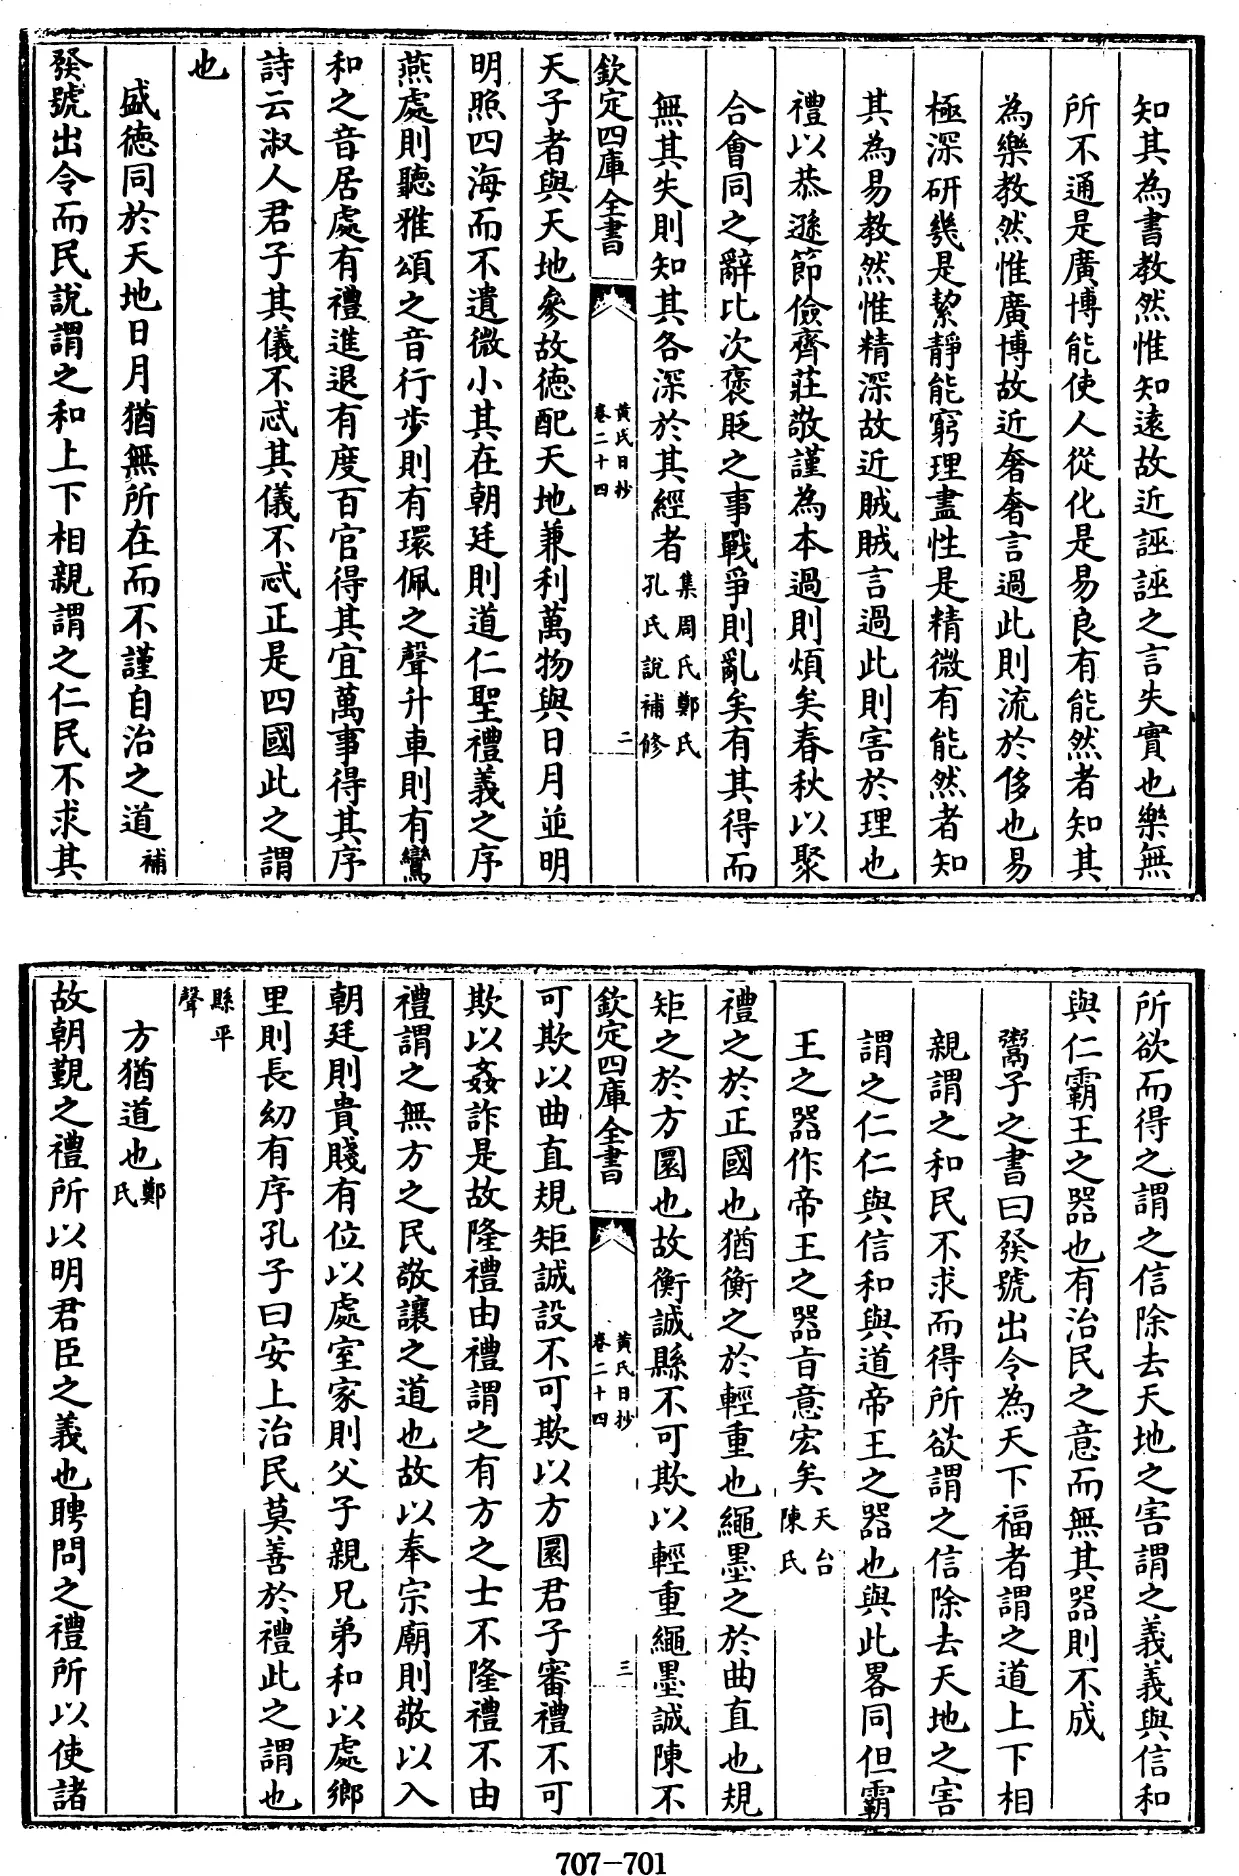 知其為書教然惟知遠故近誣誣之言失實也樂無
所不通是廣博能使人從化是易良有能然者知其
為樂教然惟廣博故近奢奢言過此則流於侈也易
極深研幾是絜靜能窮理盡性是精微有能然者知
其為易教然惟精深故近賊賊言過此則害於理也
禮以恭遜節儉齊莊敬謹為本過則煩矣春秋以聚
合會同之辭比次褒貶之事戰爭則亂矣有其得而
無其失則知其各深於其經者集周氏鄭氏孔氏說補修
欽定四庫全書 黃氏日抄 卷二十四 二
天子者與天地參故徳配天地兼利萬物與日月並明
明照四海而不遺微小其在朝廷則道仁聖禮義之序
燕處則聽雅頌之音行步則有環佩之聲升車則有鸞
和之音居處有禮進退有度百官得其宜萬事得其序
詩云淑人君子其儀不忒其儀不忒正是四國此之謂
也
盛徳同於天地日月猶無所在而不謹自治之道補
發號出令而民說謂之和上下相親謂之仁民不求其
所欲而得之謂之信除去天地之害謂之義義與信和
與仁霸王之器也有治民之意而無其器則不成
鬻子之書曰發號出令為天下福者謂之道上下相
親謂之和民不求而得所欲謂之信除去天地之害
謂之仁仁與信和與道帝王之器也與此畧同但霸
王之器作帝王之器㫖意宏矣天台陳氏
禮之於正國也猶衡之於輕重也繩墨之於曲直也規
矩之於方圜也故衡誠縣不可欺以輕重繩墨誠陳不
欽定四庫全書 黃氏日抄 卷二十四 三
可欺以曲直規矩誠設不可欺以方圜君子審禮不可
欺以姦詐是故隆禮由禮謂之有方之士不隆禮不由
禮謂之無方之民敬讓之道也故以奉宗廟則敬以入
朝廷則貴賤有位以處室家則父子親兄弟和以處鄉
里則長幼有序孔子曰安上治民莫善於禮此之謂也
縣平聲
方猶道也鄭氏
故朝覲之禮所以明君臣之義也聘問之禮所以使諸
707-701